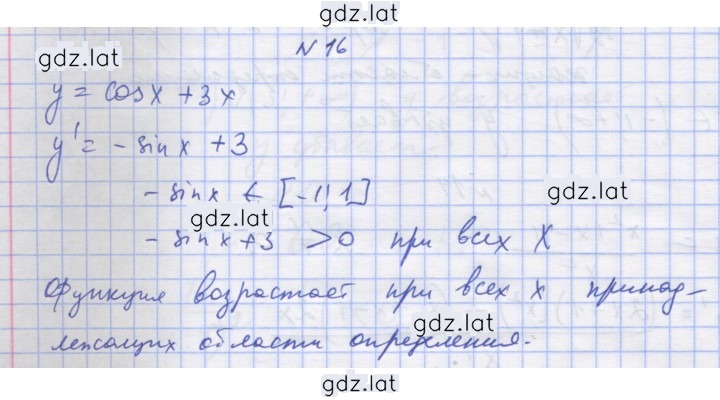 gdz.lat
N 16
gdz.lat
y = cosx + 3x
y' = - sinx + 3
- sinx ∈ [-1; 1]
gdz.lat
gdz.lat
- sinx + 3 > 0 при всех X
Функция возрастает при всех x принад-
gdz.lat
лежащих области определения.
gdz.lat